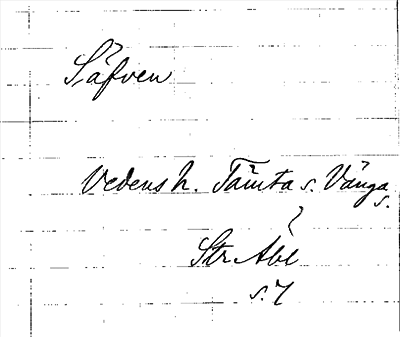 Säfven
Vedens h. Tämta s. Vånga s.
Str Äbl
s. 7